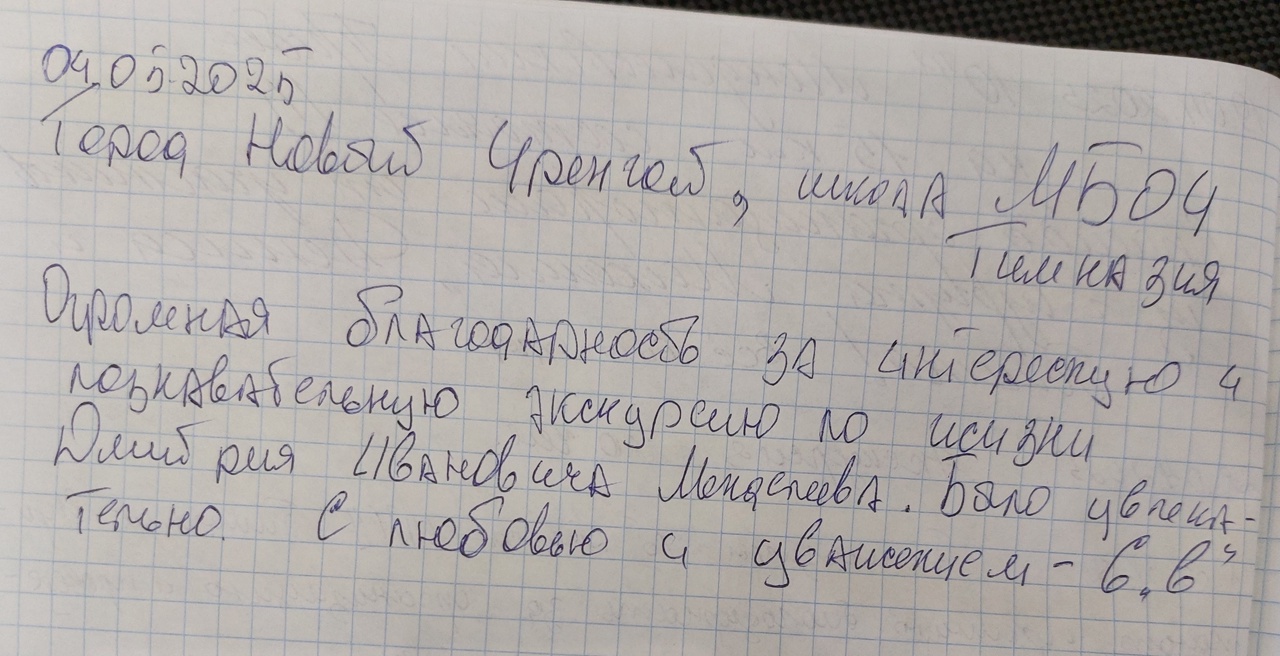 04.05.2025
Город Новый Уренгой, школа МБОУ
Гимназия
Огромная благодарность за интересную и
познавательную экскурсию по жизни
Дмитрия Ивановича Менделеева. Было увлека-
тельно. С любовью и уважением - 6 "в"